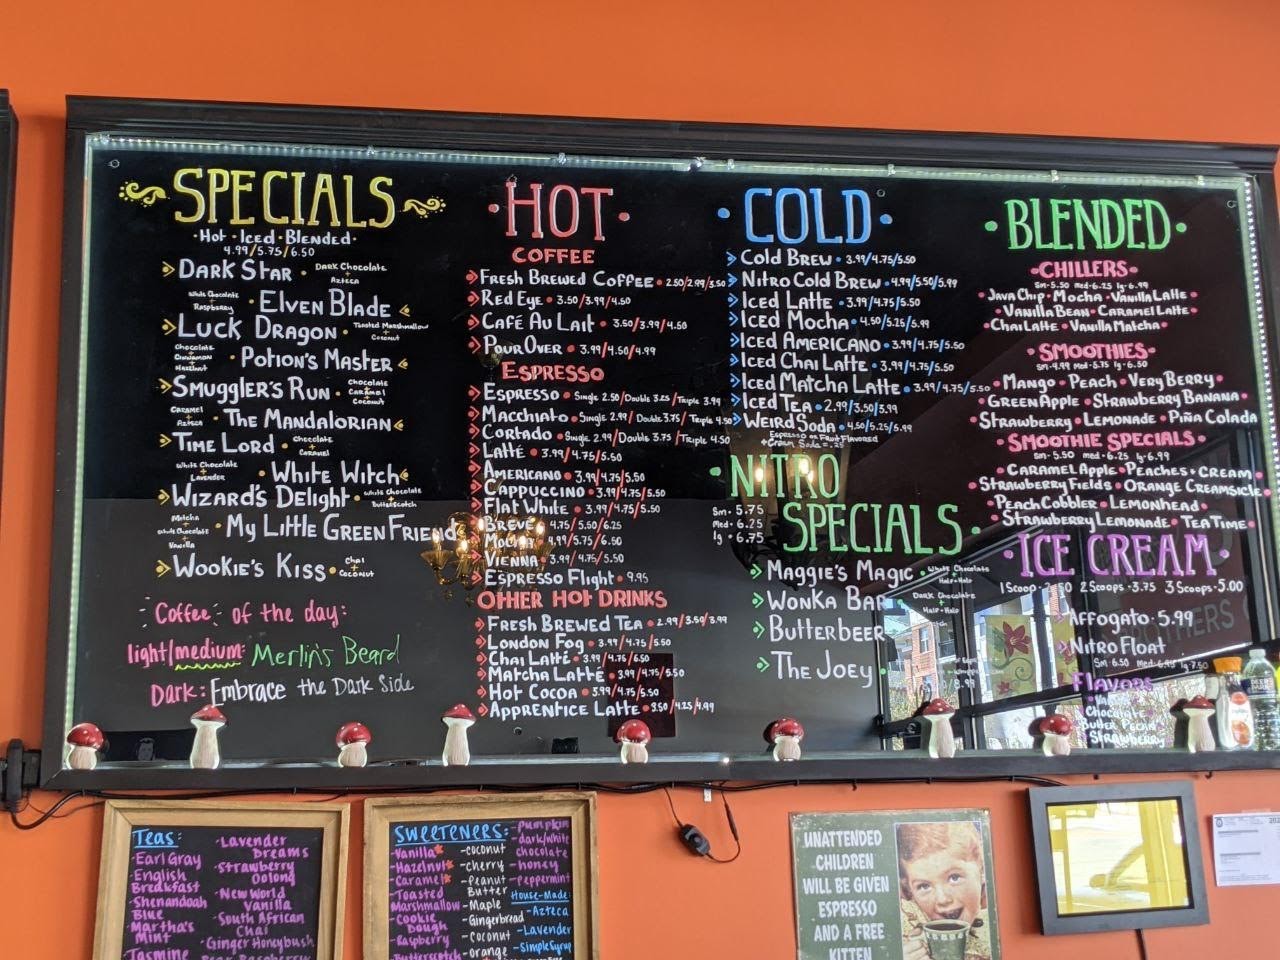 SPECIALS
Hot · Iced · Blended
4.99/5.75/6.50
Dark Star · Dark Chocolate + Azteca
White Chocolate + Raspberry · Elven Blade
Luck Dragon · Toasted Marshmallow + Coconut
Chocolate + Cinnamon + Hazelnut · Potion's Master
Smuggler's Run · Chocolate + Caramel + Coconut
Caramel + Azteca · The Mandalorian
Time Lord · Chocolate + Caramel
White Chocolate + Lavender · White Witch
Wizard's Delight · White Chocolate + Butterscotch
Matcha + White Chocolate + Vanilla · My Little Green Friend
Wookie's Kiss · Chai + Coconut
Coffee of the day:
light/medium: Merlin's Beard
Dark: Embrace the Dark Side
·HOT·
COFFEE
Fresh Brewed Coffee · 2.50/2.99/3.50
Red Eye · 3.50/3.99/4.50
Café Au Lait · 3.50/3.99/4.50
Pour Over · 3.99/4.50/4.99
ESPRESSO
Espresso · Single 2.50/Double 3.25/Triple 3.99
Macchiato · Single 2.99/Double 3.75/Triple 4.50
Cortado · Single 2.99/Double 3.75/Triple 4.50
Latté · 3.99/4.75/5.50
Americano · 3.99/4.75/5.50
Cappuccino · 3.99/4.75/5.50
Flat White · 3.99/4.75/5.50
Breve · 4.75/5.50/6.25
4.99/5.75/6.50
Vienna · 3.99/4.75/5.50
Espresso Flight · 9.95
OTHER HOT DRINKS
Fresh Brewed Tea · 2.99/3.50/3.99
London Fog · 3.99/4.75/5.50
Chai Latté · 3.99/4.75/5.50
Matcha Latté · 3.99/4.75/5.50
Hot Cocoa · 3.99/4.75/5.50
Apprentice Latte · 3.50/4.25/4.99
·COLD·
Cold Brew · 3.99/4.75/5.50
Nitro Cold Brew · 4.99/5.50/5.99
Iced Latte · 3.99/4.75/5.50
Iced Mocha · 4.50/5.25/5.99
Iced Americano · 3.99/4.75/5.50
Iced Chai Latte · 3.99/4.75/5.50
Iced Matcha Latte · 3.99/4.75/5.50
Iced Tea · 2.99/3.50/3.99
Weird Soda · 4.50/5.25/5.99
Espresso or Fruit Flavored
+ Cream Soda = .25
·NITRO
SPECIALS·
Sm - 5.75
Med - 6.25
lg - 6.75
Maggie's Magic · White Chocolate + Half+Half
Wonka Bar Dark Chocolate + Half+Half
Butterbeer
The Joey
8.99
·BLENDED·
·CHILLERS·
Sm-5.50 med-6.25 lg-6.99
Java Chip · Mocha · Vanilla Latte
Vanilla Bean · Caramel Latte
Chai Latte · Vanilla Matcha
·SMOOTHIES·
Sm-4.99 Med-5.75 lg-6.50
Mango · Peach · Very Berry
Green Apple · Strawberry Banana
Strawberry · Lemonade · Piña Colada
·SMOOTHIE SPECIALS·
Sm-5.50 med-6.25 lg-6.99
Caramel Apple · Peaches + Cream
Strawberry Fields · Orange Creamsicle
Peach Cobbler · Lemonhead
Strawberry Lemonade · Tea Time
·ICE CREAM·
1 Scoop 2 Scoops · 3.75 3 Scoops · 5.00
Affogato · 5.99
Nitro Float
Sm-6.50 Med-6.95 lg-7.50
Flavors
Chocolate
Butter Pecan
Strawberry
Teas:
Earl Gray
English Breakfast
Shenandoah Blue
Martha's Mint
Jasmine
Lavender Dreams
Strawberry Oolong
New World Vanilla
South African Chai
Ginger Honeybush
SWEETENERS:
Vanilla*
Hazelnut*
Caramel*
Toasted Marshmallow
Cookie Dough
Raspberry
Butterscotch
coconut
cherry
Peanut Butter
Maple
Gingerbread
Coconut
orange
pumpkin
dark/white chocolate
honey
peppermint
House-Made:
Azteca
Lavender
Simple Syrup
UNATTENDED
CHILDREN
WILL BE GIVEN
ESPRESSO
AND A FREE
KITTEN